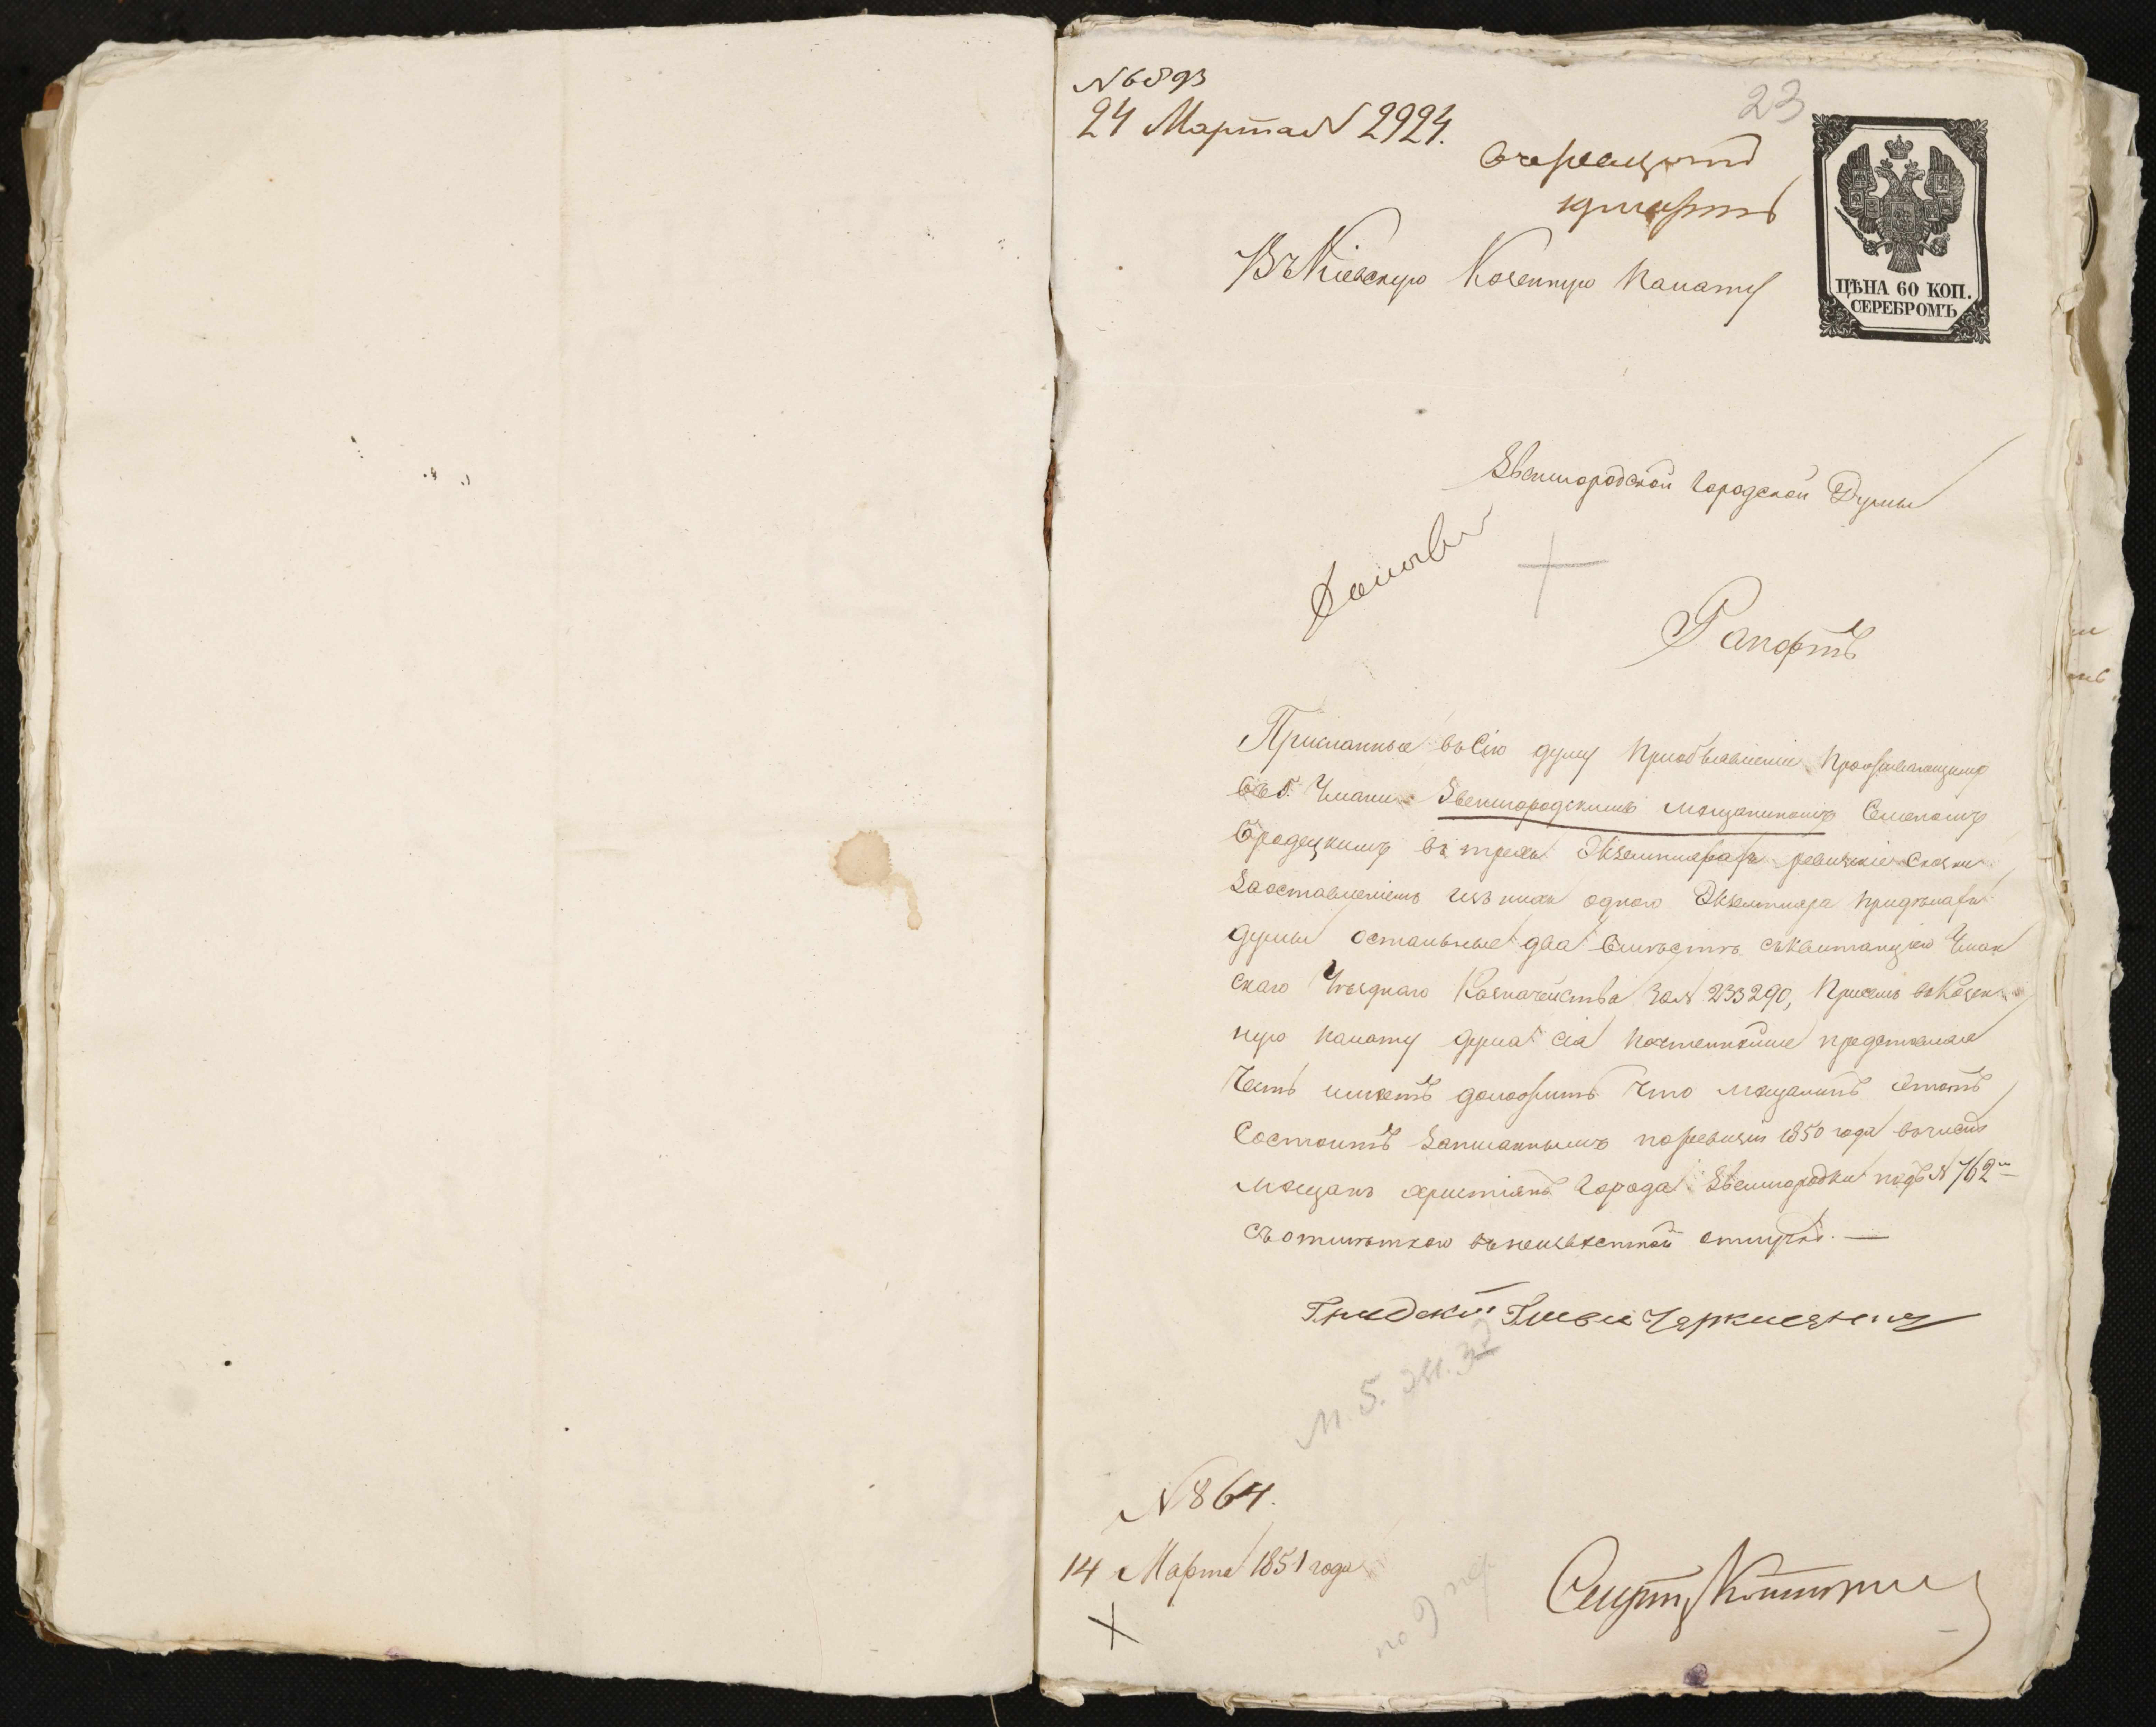 N 6893
23
24 Марта N 2924.
ЦѢНА 60 КОП.
СЕРЕБРОМЪ
Въ Кіевскую Казенную Палату
Звенигородской Городской Думы
Рапортъ
Присланные въ Сію думу приобъявленіи Проживающимъ
въ г. Умани Звенигородскимъ мещаниномъ
Бродецкимъ въ трехъ Экземплярахъ ревизкіе Сказки
Заоставленіемъ изъ нихъ одного Экземпляра придѣлахъ
думы остальные два вмѣстѣ съ квитанціею Уман
скаго Уѣзднаго Казначейства за N 233290, при семъ въ Казен
ную палату дума сія почтеннѣйше представляя
Честь имѣетъ доложить что мещанинъ этотъ
Состоитъ записаннымъ по ревизіи 1850 года въ числѣ
мещанъ христіянъ города Звенигородки подъ N 762м
съ отмѣткою въ неизвѣстной отлучкѣ. —
Градскій Глава
М. 5.
N 864.
14 Марта 1851 года